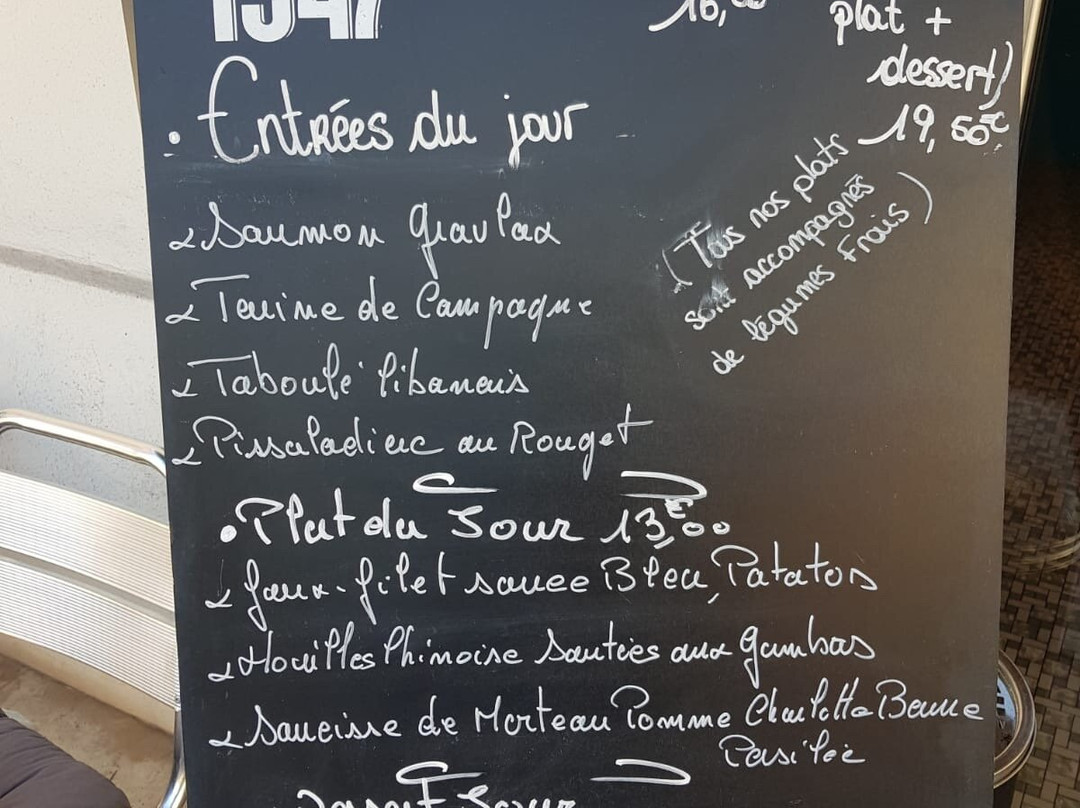 1547
plat +
dessert)
19,50€
• Entrées du jour
Saumon gravlax
Terrine de Campagne
Taboulé libanais
Pissaladière au Rouget
(Tous nos plats
sont accompagnés
de légumes Frais)
• Plat du Jour 13,€00
faux-filet sauce Bleu, Patatos
Nouilles Chinoise Sautées aux gambas
Saucisse de Morteau Pomme Charlotte Beurre
Persillé